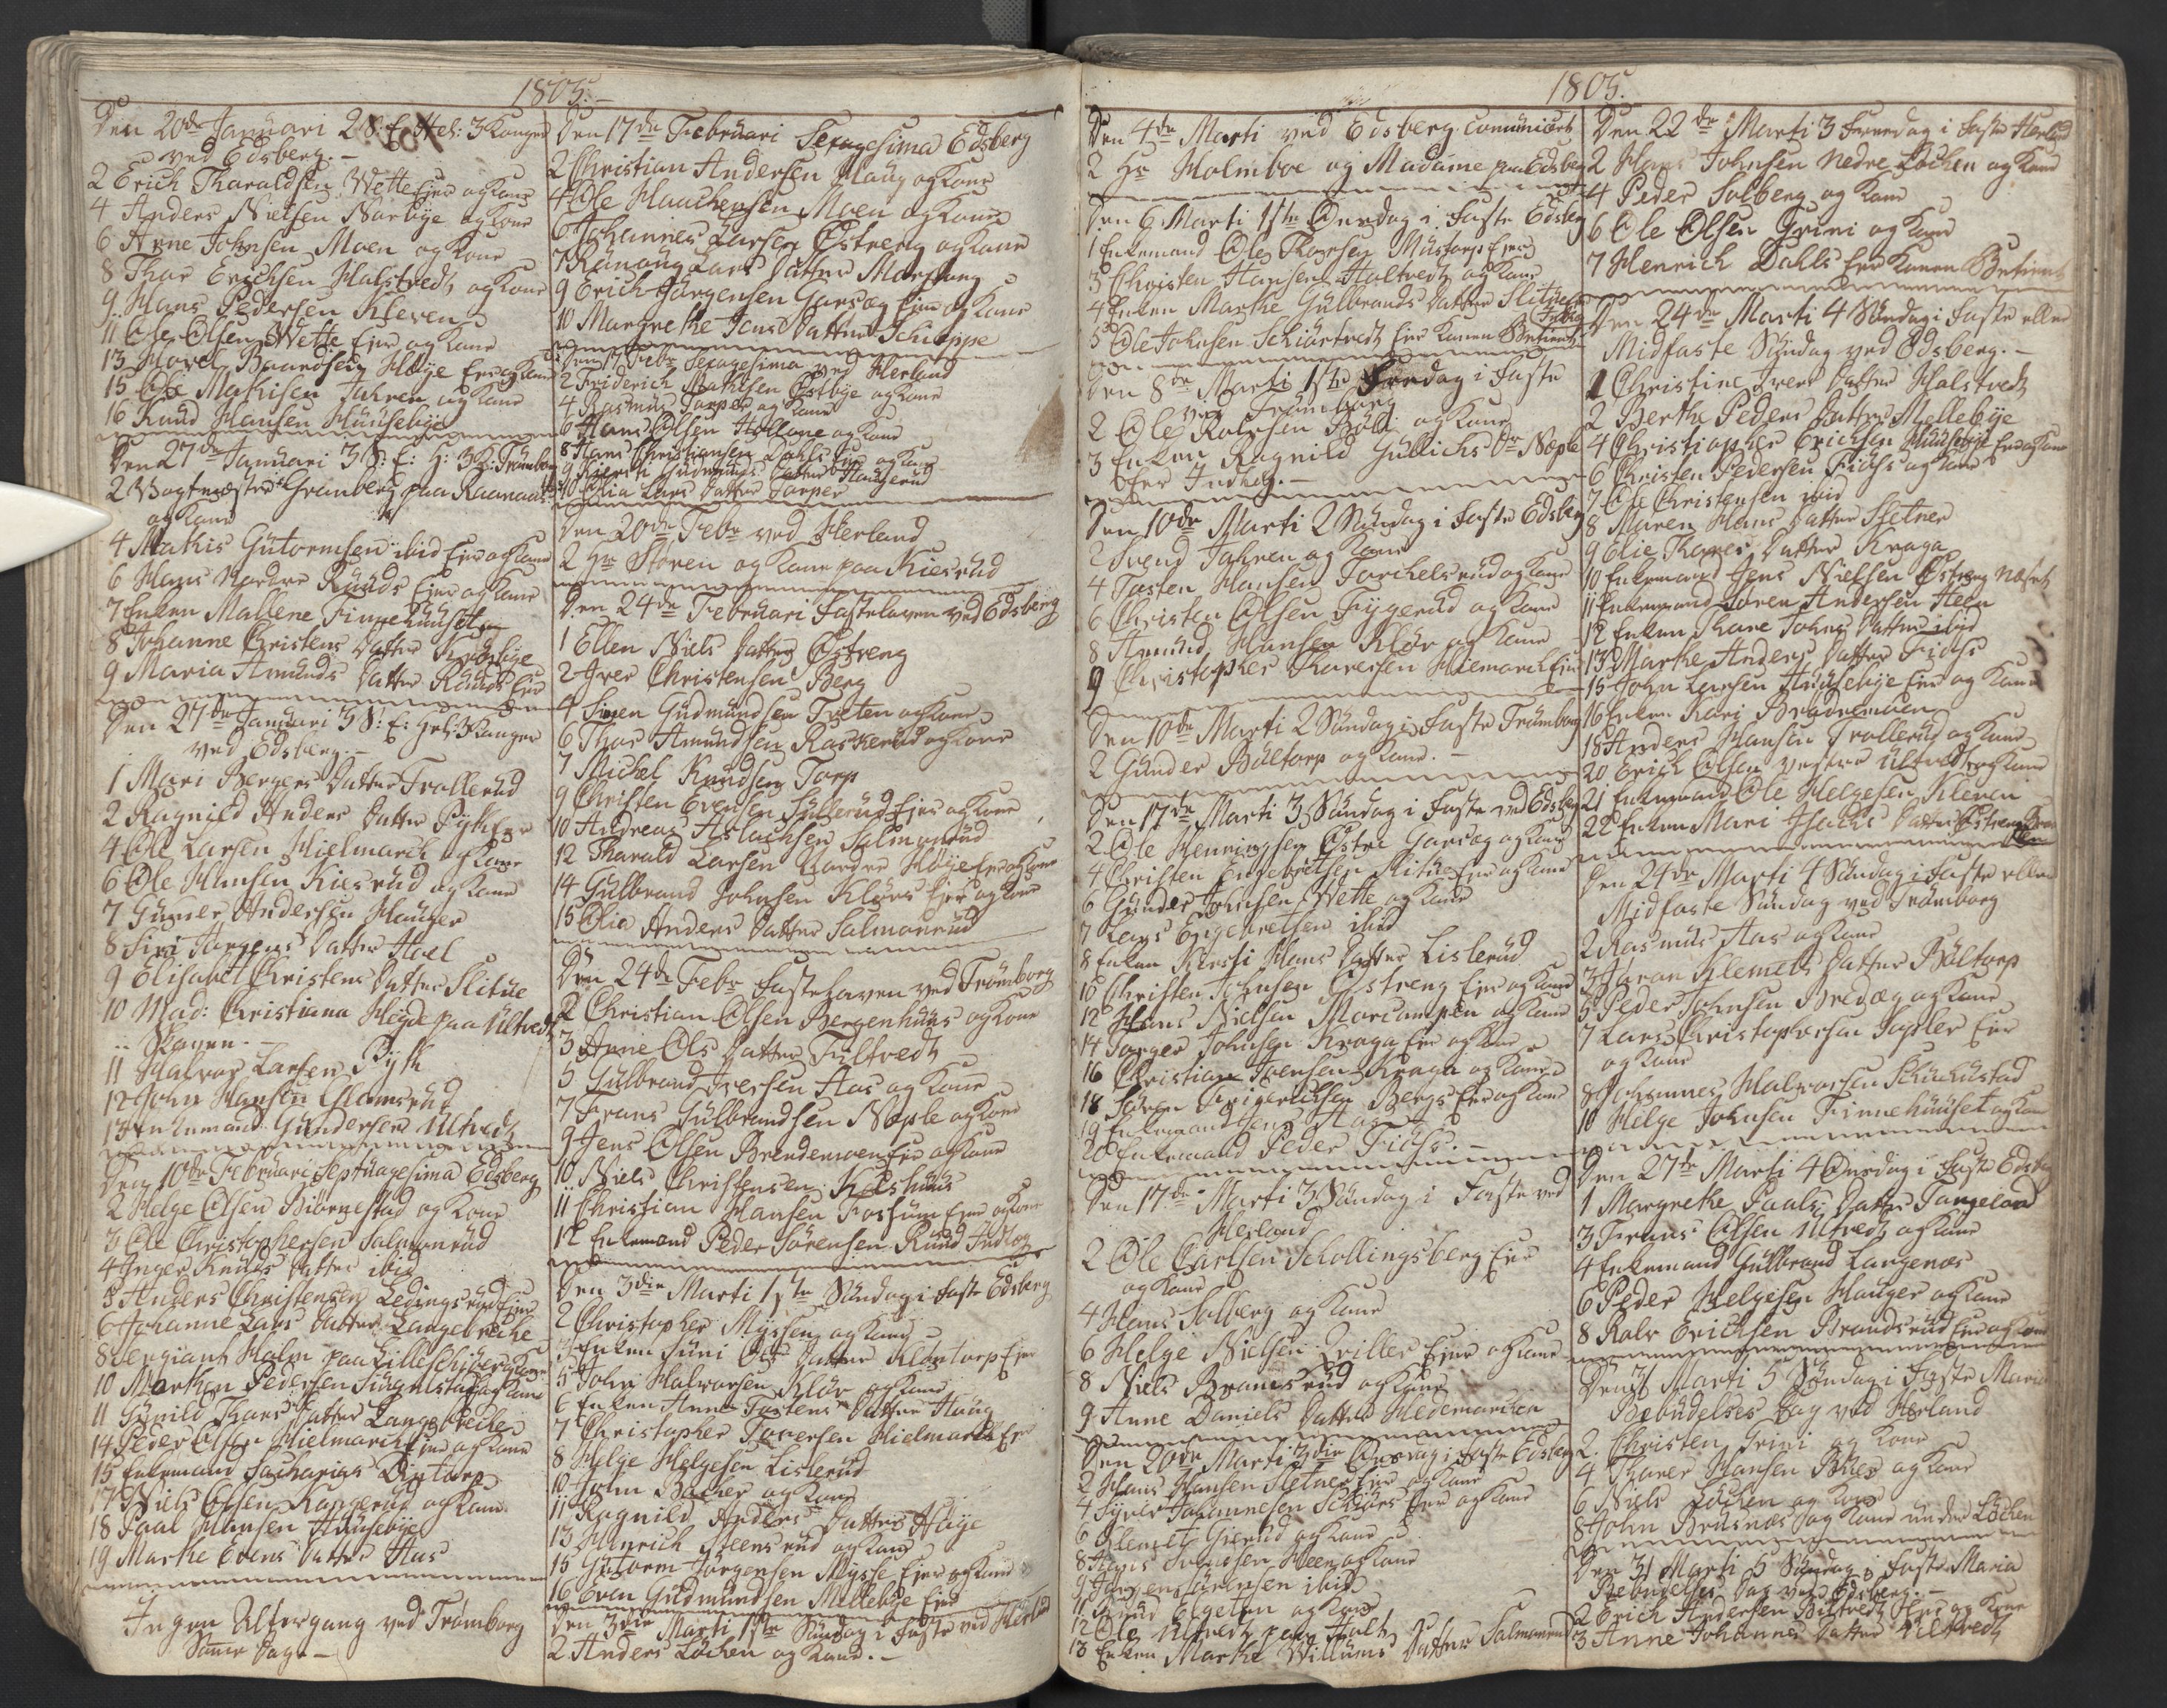 1805.
Den 20de Januari 2 S: E: Hel: 3 Konger
ved Edsberg.
2 Erich Tharaldsen Wette Eier og Kone
4 Anders Nielsen Narbye og Kone
6 Arne Johnsen Moen og Kone
8 Thor Erichsen Halstvedt og Kone
9 Hans Pedersen Kleven
11 Ole Olsen Wette Eier og Kone
13 Baardsen Høye Eier og Kone
15 Ole Mathisen Jahren og Kone
16 Knud Hansen Huusebye
Den 27de Januari 3 S: E: H: 3 K: Trømborg
2 Vagtmæster Granberg paa Raanaas
og Kone
4 Mathis Gutormsen ibid Eier og Kone
6 Hans Nordre Ruuds Eier og Kone
7 Enken Mallene Finnehuuset
8 Johanne Christens Datter Krosbye
9 Maria Amunds Datter Ruuds Eier
Den 27de Januari 3 S: E: Hel: 3 Konger
ved Edsberg.
1 Mari Bergers Datter Trollerud
2 Ragnild Anders Datter Fyk
4 Ole Larsen Hielmarck og Kone
6 Ole Hansen Kiesrud og Kone
7 Guner Andersen Hauger
8 Siri Jørgens Datter Hoel
9 Elisabet Christens Datter Slitue
10 Mad: Christiana Heyde paa Ultvedt
Skoven.
11 Halvor Larsen Fyk
12 John Hansen Glomsrud
13 Enkemand Gundersen Ultvedt
Den 10de Februari Septuagesima Edsberg
2 Helge Olsen Biørnestad og Kone
3 Ole Christophersen Salmonrud
4 Inger Knuds Datter ibid
5 Anders Christensen Ledingsrud Eier
6 Johanne Lars Datter Langebreche
8 Sergiant Holm paa Lilleschiberg og Kone
10 Morthen Pedersen og Kone
11 Gunild Thors Datter Langebreche
14 Peder Olsen Hielmarch Eier og Kone
15 Enkemand Sacharias Dintorp
17 Niels Olsen Kangerud og Kone
18 Paal Hansen Huusebye
19 Marthe Evens Datter Haus
Ingen Altergang ved Trømborg
Samme Dag.
Den 17de Februari Sexagesima Edsberg
2 Christian Andersen Haug og Kone
4 Ole Haachensen Moen og Kone
6 Johannes Larsen Østreng og Kone
7 Rønnaug Lars Datter Morstang
9 Erich Jørgensen Garsøg Eier og Kone
10 Margrethe Jens Datter Schieppe
Den 17 Febr Sexagesima ved Herland
2 Friderich Mathisen Østbye og Kone
4 Rasmus Torper og Kone
6 Hans Olsen Hollane og Kone
8 Hans Christiansen Dahls Eier og Kone
9 Kiersti Gudmunds Datter Haugerud
10 Olia Lars Datter Torper
Den 20de Febr ved Herland
2 Hr Støren og Kone paa Kiesrud
Den 24de Februari Fastelaven ved Edsberg
1 Ellen Niels Datter Østreng
2 Iver Christensen Berg
4 Simen Gudmundsen Treten og Kone
6 Thor Amundsen Raskerud og Kone
7 Michel Knudsen Torp
9 Christen Evensen Sullerud Eier og Kone
10 Andreas Aslachsen Salmonrud
12 Tharald Larsen Nordre Høye Eier og Kone
14 Gulbrand Johnsen Kløvs Eier og Kone
15 Olia Anders Datter Salmonrud
Den 24de Febr Fastelaven ved Trømborg
2 Christian Olsen Bergenhuus og Kone
3 Anne Ols Datter Fultvedt
5 Gulbrand Iversen Has og Kone
7 Frans Gulbrandsen Nople og Kone
9 Jens Olsen Brendemoen Eier og Kone
10 Niels Christensen Kolshuus
11 Christian Hansen Fossum Eier og Kone
12 Enkemand Peder Sørensen Ruud Indlog
Den 3die Marti 1ste Søndag i Faste Edsberg
2 Christopher Mysseng og Kone
3 Enken Siuni Ols Datter Klontorp Eier
5 John Halvorsen Kløv og Kone
6 Enken Anne Tostens Datter Haug
7 Christopher Torersen Hielmarks Eier
8 Helge Helgesen Lislerud
10 John Bæcher og Kone
11 Ragnild Anders Datter Høye
13 Henrich Steensrud og Kone
15 Gutorm Jørgensen Mysse Eier og Kone
16 Even Gudmundsen Mellebye Eier
Den 3die Marti 1ste Søndag i Faste ved Herland
2 Anders Løchen og Kone.
1805.
Den 4de Marti ved Edsberg Comunicerte
2 Hr Holmboe og Madame paa Edsberg
Den 6 Marti 1ste Onsdag i Faste Edsberg
1 Enkemand Ole Thorsen Mustorp Eier
3 Christen Hansen Holtvedt og Kone
4 Enken Marthe Gulbrands Datter Slitue
5 Ole Johnsen Schiørtvedt Eier Konen Betient
Den 8de Marti 1ste Fredag i Faste
ved Trømborg
2 Ole Rolvsen Bøli og Kone
3 Enken Ragnild Gullichs Dr Nople
Eier Indlog.
Den 10de Marti 2 Søndag i Faste Edsberg
2 Svend Jahren og Kone
4 Tosten Hansen Torchelsrud og Kone
6 Christen Olsen Fygerud og Kone
8 Amund Hansen Kløv og Kone
9 Christopher Thoresen Hiemarck Eier
Den 10de Marti 2 Søndag i Faste Trømborg
2 Gunder Bøltorp og Kone.
Den 17de Marti 3 Søndag i Faste ved Edsberg
2 Ole Henningsen Østre Garsøg og Kone
4 Christen Engebretsen Slitue Eier og Kone
6 Gunder Johnsen Wette og Kone
7 Lars Engebretsen ibid
8 Enken Kiersti Hans Datter Lislerud
10 Christen Johnsen Østreng Eier og Kone
12 Hans Nielsen Morcompen og Kone
14 Torger Johnsen Kraga Eier og Kone
16 Christian Iversen Kraga og Kone
18 Søren Bergs Eier og Kone
19 Enkemand Jens Haas
20 Enkemand Peder Fiøss.
Den 17de Marti 3 Søndag i Faste ved
Herland
2 Ole Carlsen Schollingsberg Eier
og Kone
4 Hans Solberg og Kone
6 Helge Nielsen Qviller Eier og Kone
8 Niels Bramsrud og Kone
9 Anne Daniels Datter Hedemarchen
Den 20de Marti 3die Onsdag i Faste Edsberg
2 Hans Hansen Sletner Eier og Kone
4 Syver Johannesen Schiørs Eier og Kone
6 Clemet Gierud og Kone
8 Hans Svendsen Heen og Kone
9 Jørgen Sørensen ibid
11 Knud Elgeton og Kone
12 Ole Ultvedt paa Holt
13 Enken Marthe Willums Datter Salmonrud
Den 22de Marti 3 Freredag i Faste Herland
2 Hans Johnsen Nedre Løchen og Kone
4 Peder Solberg og Kone
6 Ole Olsen Grini og Kone
7 Henrich Dahls Eier Konen Betient
Den 24de Marti 4 Søndag i Faste eller
Midfaste Søndag ved Edsberg.
1 Christine Ivers Datter Halstvedt
2 Berthe Peders Datter Mellebye
4 Christopher Erichsen Huusebye Eier og Kone
6 Christen Pedersen Fiøss og Kone
7 Ole Christensen ibid
8 Maren Hans Datter Sletner
9 Olie Thores Datter Kraga
10 Enkemand Jens Nielsen Østreng Næset
11 Enkemand Søren Andersen Heen
12 Enken Thore Johns Datter ibid
13 Marthe Anders Datter Fiøss
15 John Larsen Huusebye Eier og Kone
16 Enken Kari Brødremoen
18 Anders Hansen Trollerud og Kone
20 Erich Olsen Vestre Ultvedt og Kone
21 Enkemand Ole Helgesen Kleven
22 Enken Mari Isachs Datter
Den 24de Marti 4 Søndag i Faste eller
Midfaste Søndag ved Trømborg
2 Rasmus Has og Kone
3 Jøran Klemets Datter Bøltorp
5 Peder Johnsen Bredæg og Kone
7 Lars Christophersen Eier
og Kone
8 Johannes Halvorsen
10 Helge Johnsen Finnehuuset og Kone
Den 27de Marti 4 Onsdag i Faste Edsberg
1 Margrethe Paals Datter Tangeland
3 Frans Olsen Ultvedt og Kone
4 Enkemand Gulbrand Langenæs
6 Peder Helgesen Hauger og Kone
8 Rolv Erichsen Brandsrud Eier og Kone
Den 31 Marti 5 Søndag i Faste Maria
Bebudelses Dag ved Herland
2. Christen Grini og Kone
4 Thorer Hansen og Kone
6 Niels Løchen og Kone
8 John Brusnæs og Kone under Løchen
Den 31 Marti 5 Søndag i Faste Maria
Bebudelses Dag ved Edsberg.
2 Erich Andersen Ultvedt Eier og Kone
3 Anne Johannes Datter Ultvedt